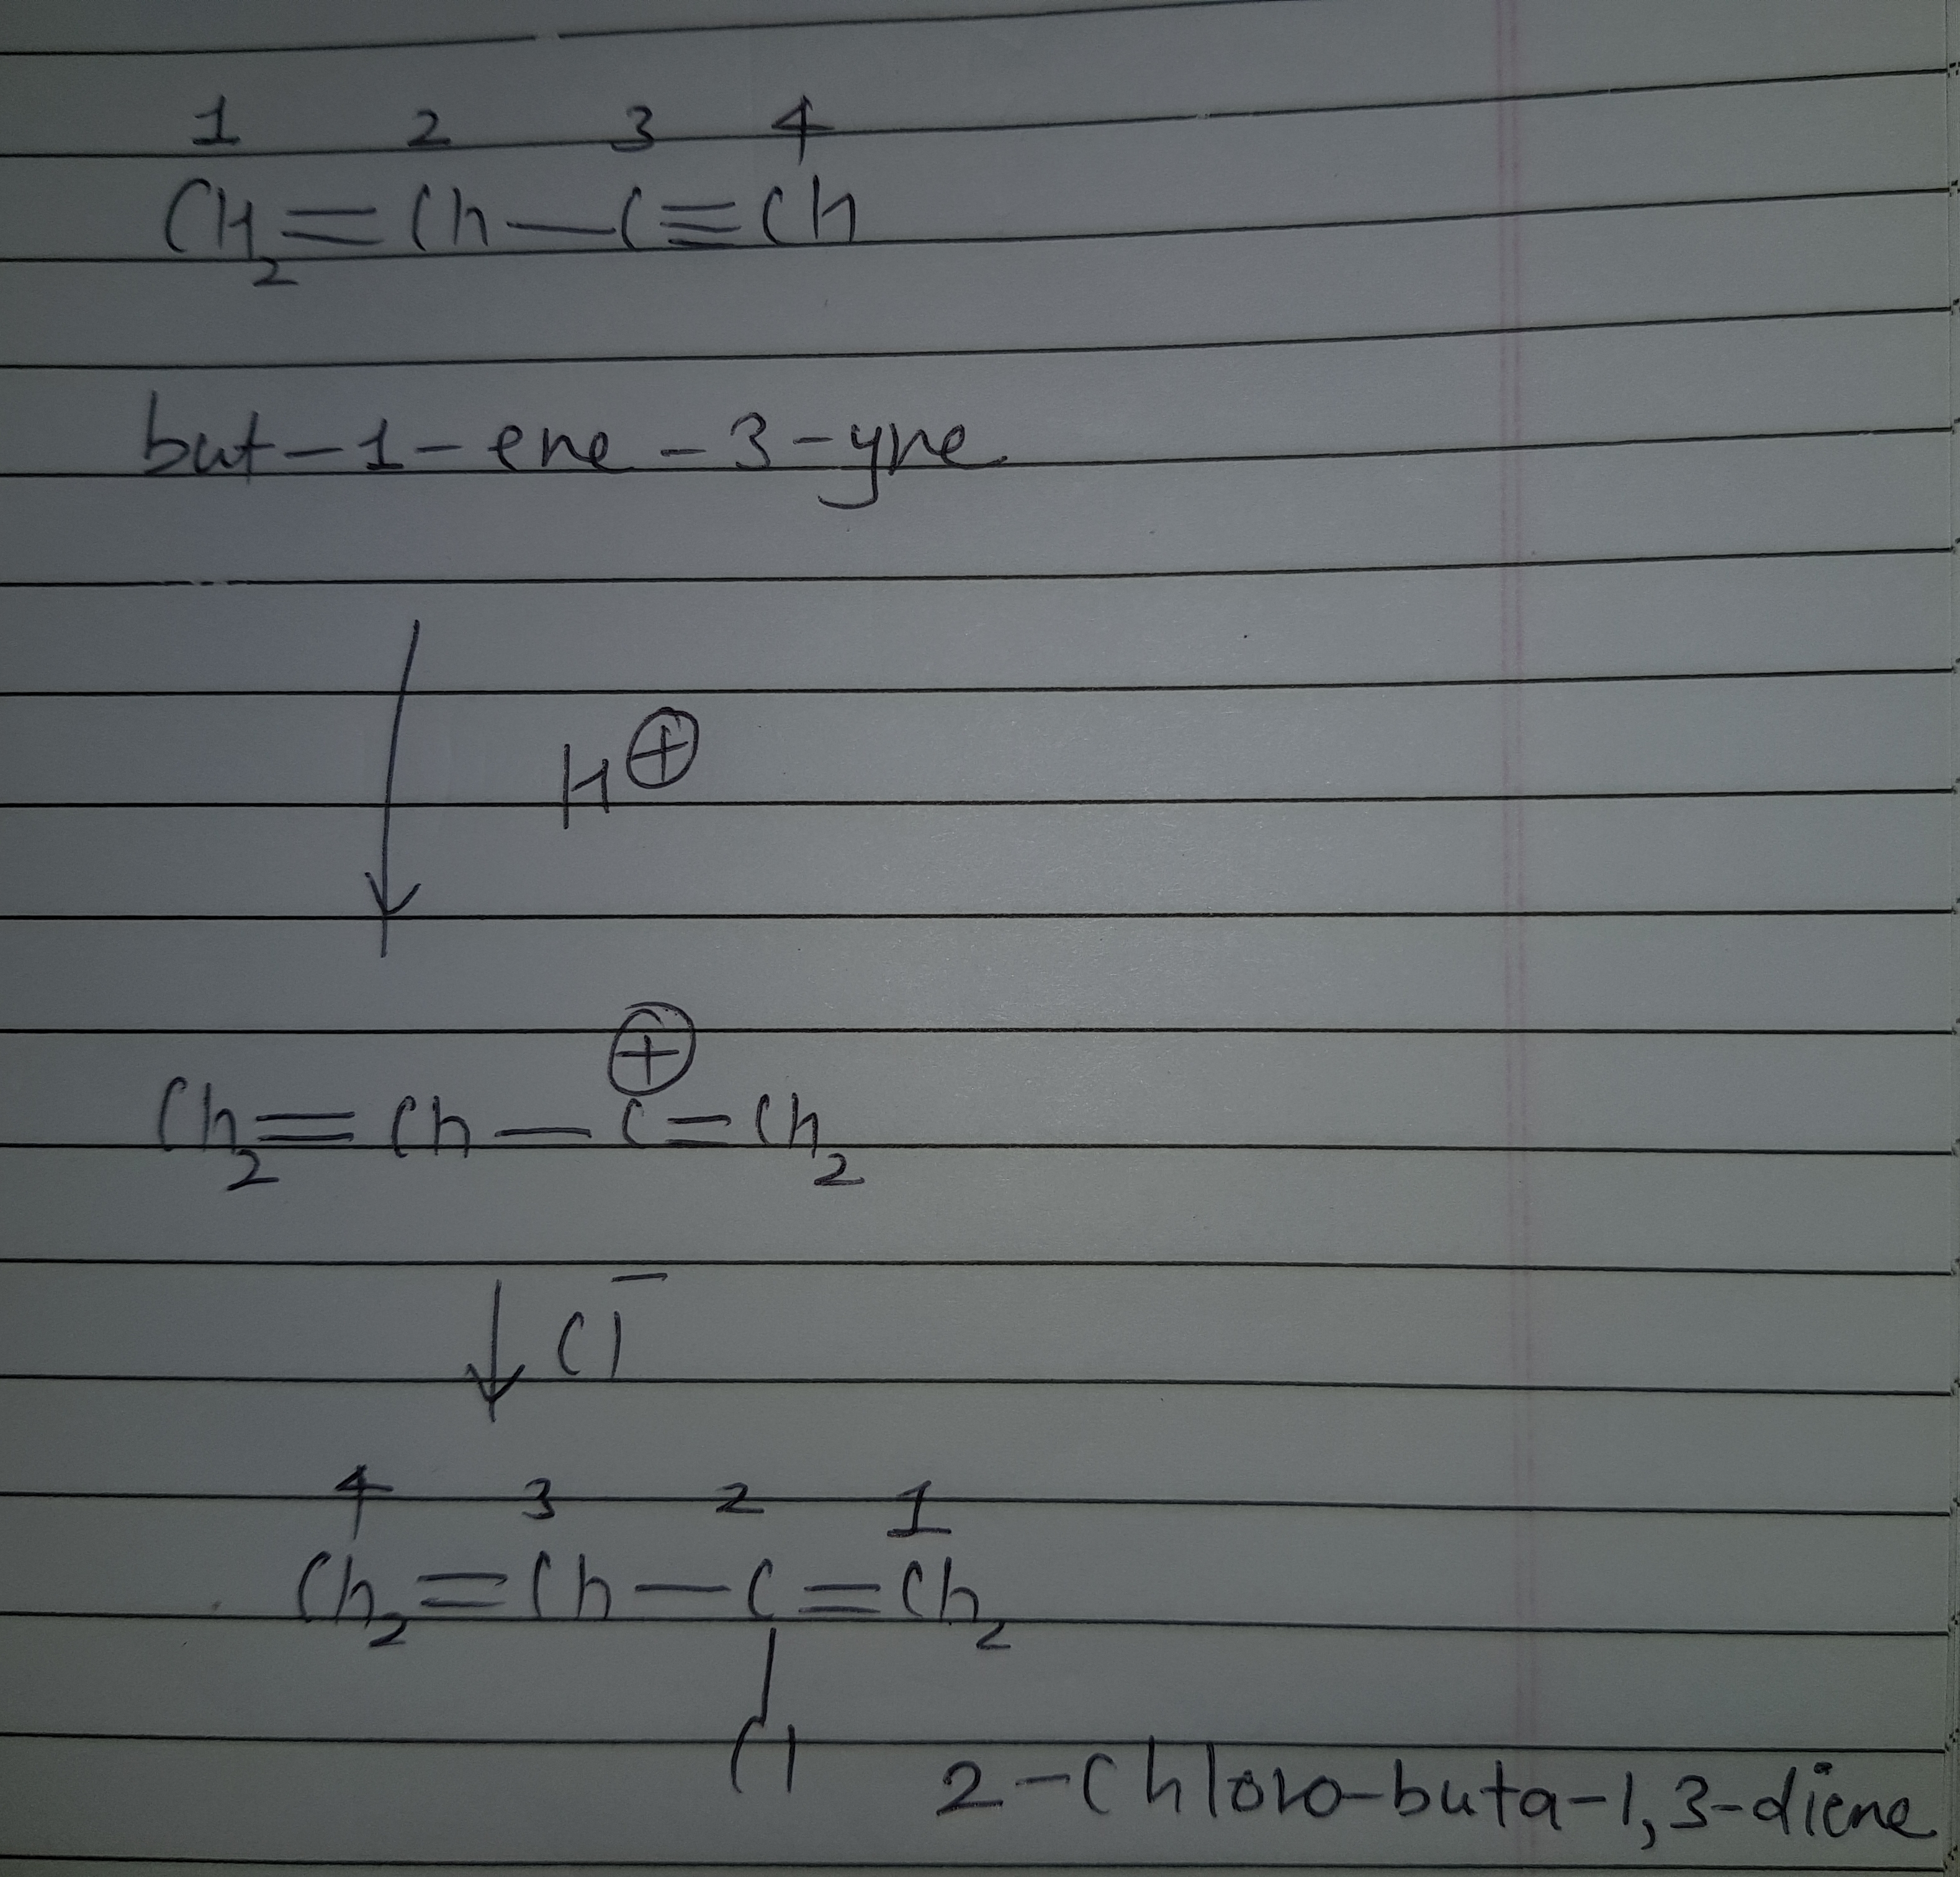 1 2 3 4
CH₂=Ch—C≡Ch
but-1-ene-3-yne
H⊕
⊕
Ch₂=Ch—C=Ch₂
Cl⁻
4 3 2 1
Ch₂=Ch—C=Ch₂
|
Cl 2-Chloro-buta-1,3-diene